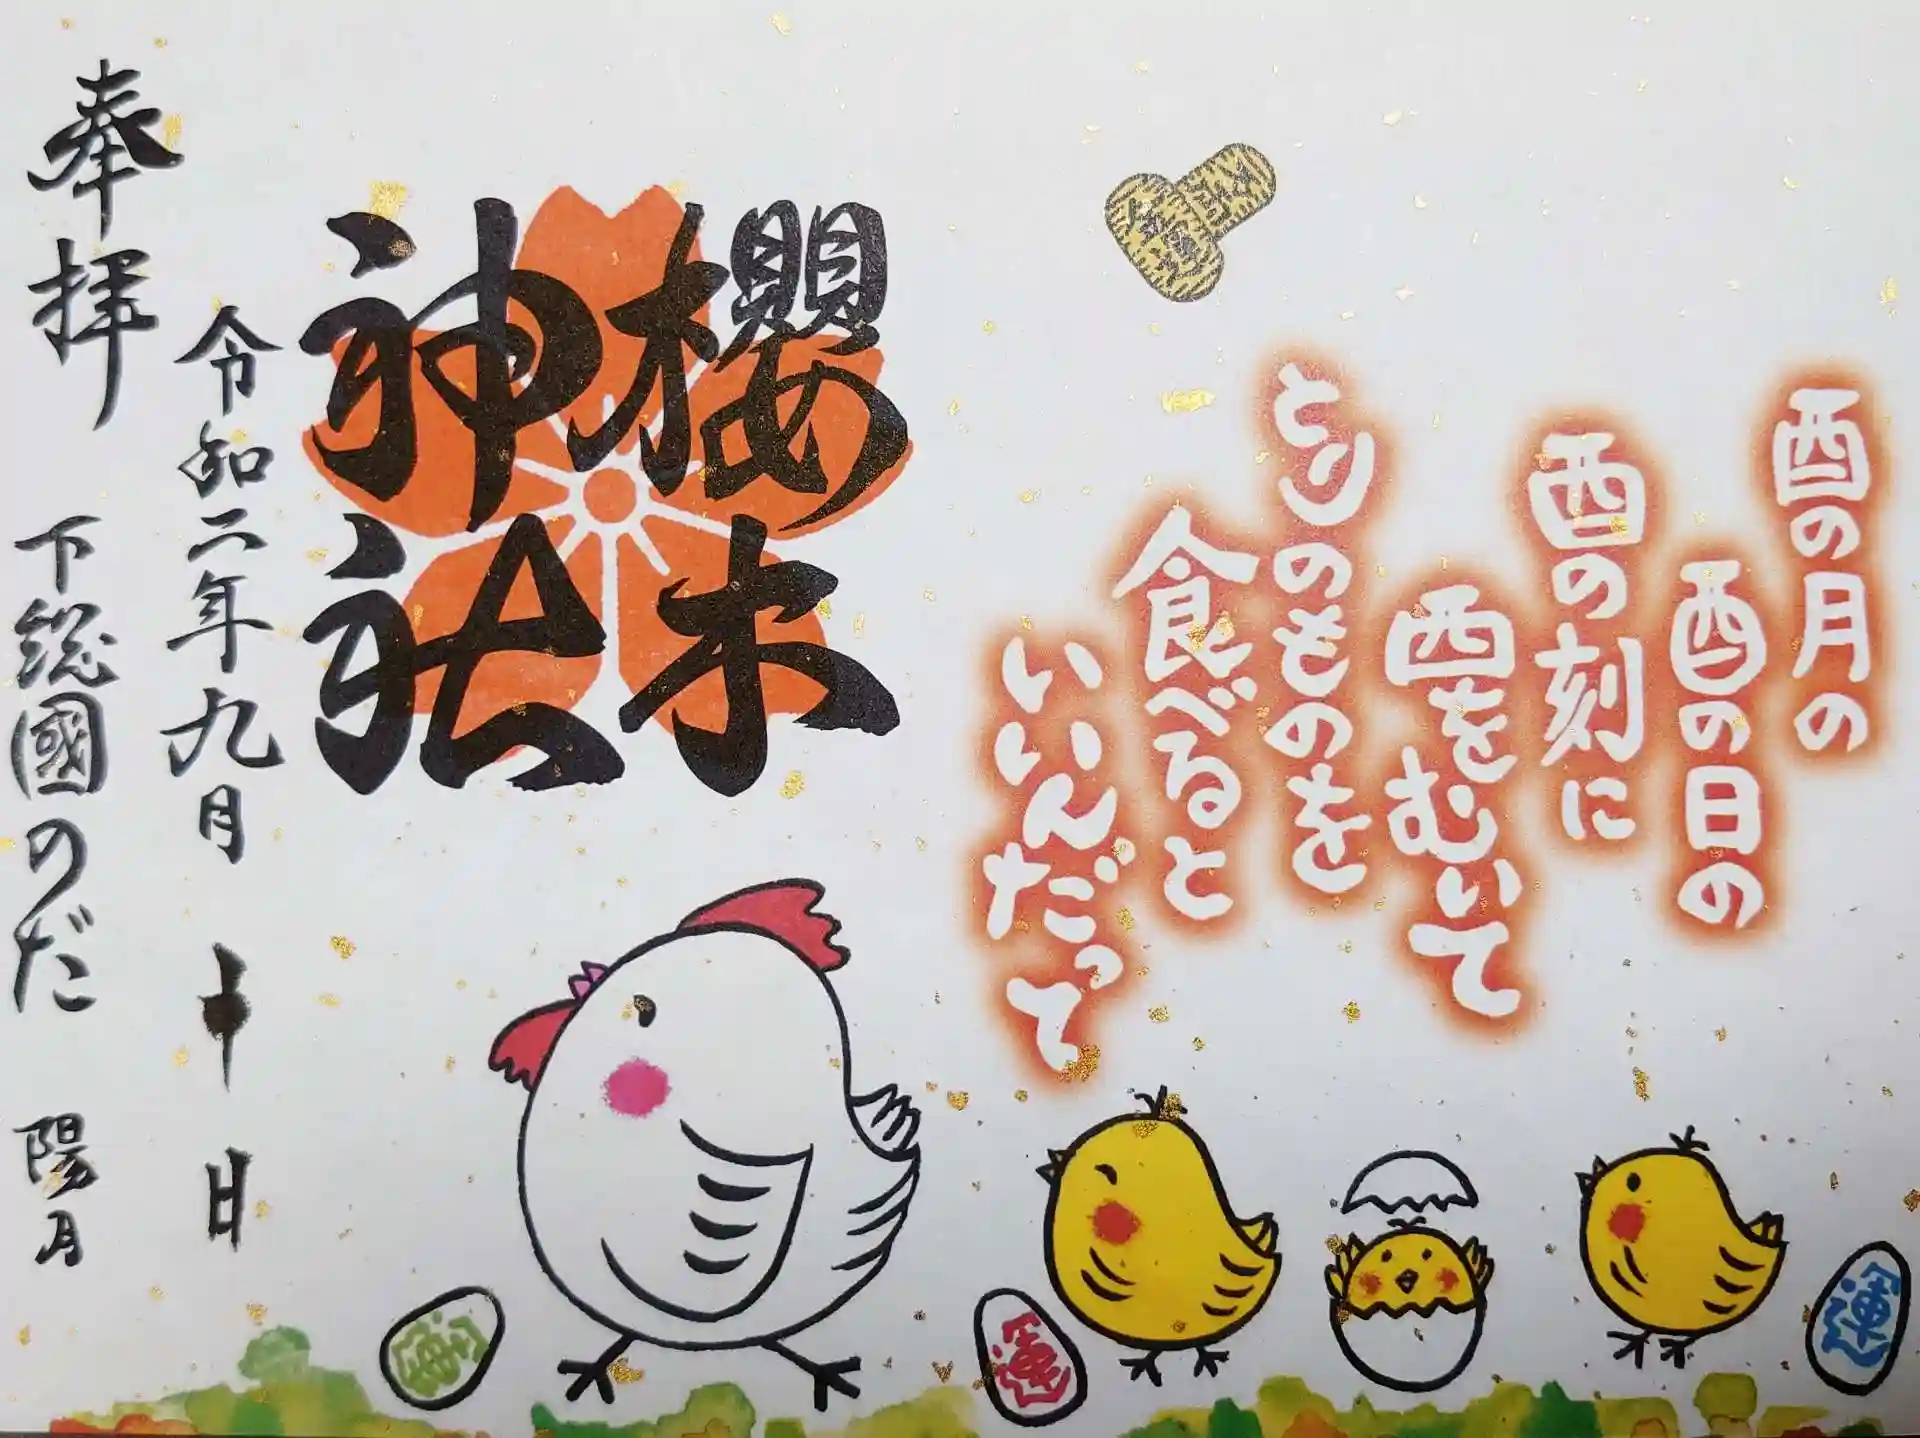 酉の月の
酉の日の
酉の刻に
西をむいて
とりのものを
食べると
いいんだって
櫻木
神社
令和二年九月十日
奉拝 下総國のだ 陽月
運
運
運